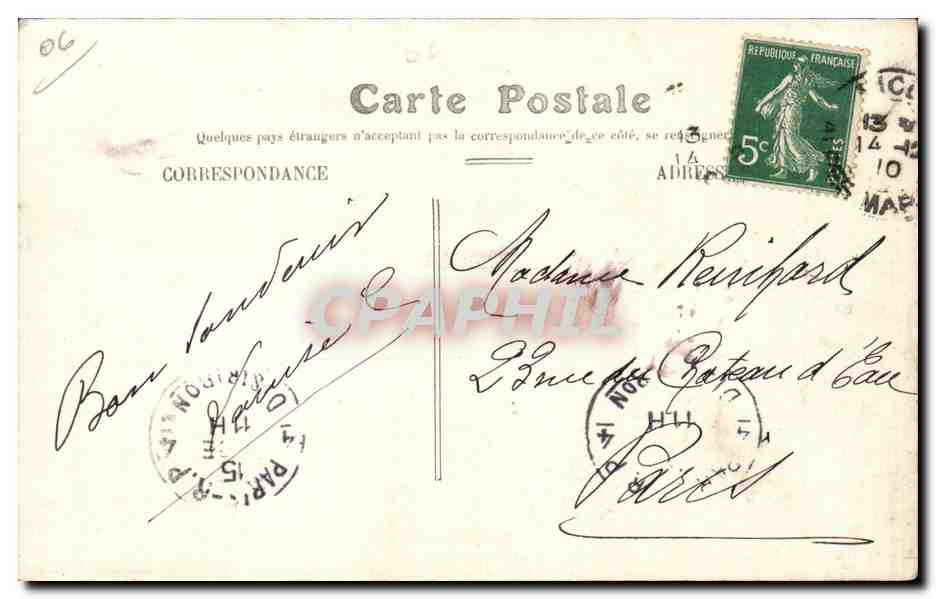 06
Carte Postale
Quelques pays étrangers n'acceptent pas la correspondance de ce côté, se renseigner
CORRESPONDANCE
ADRESSE
REPUBLIQUE FRANÇAISE
POSTES
5c
13
14
10
MAR
Bon souvenir
Louise C
Madame Reinhard
23 rue du Chateau d'Eau
Paris
CPAPHIL
11 H
15
PARIS
11 H